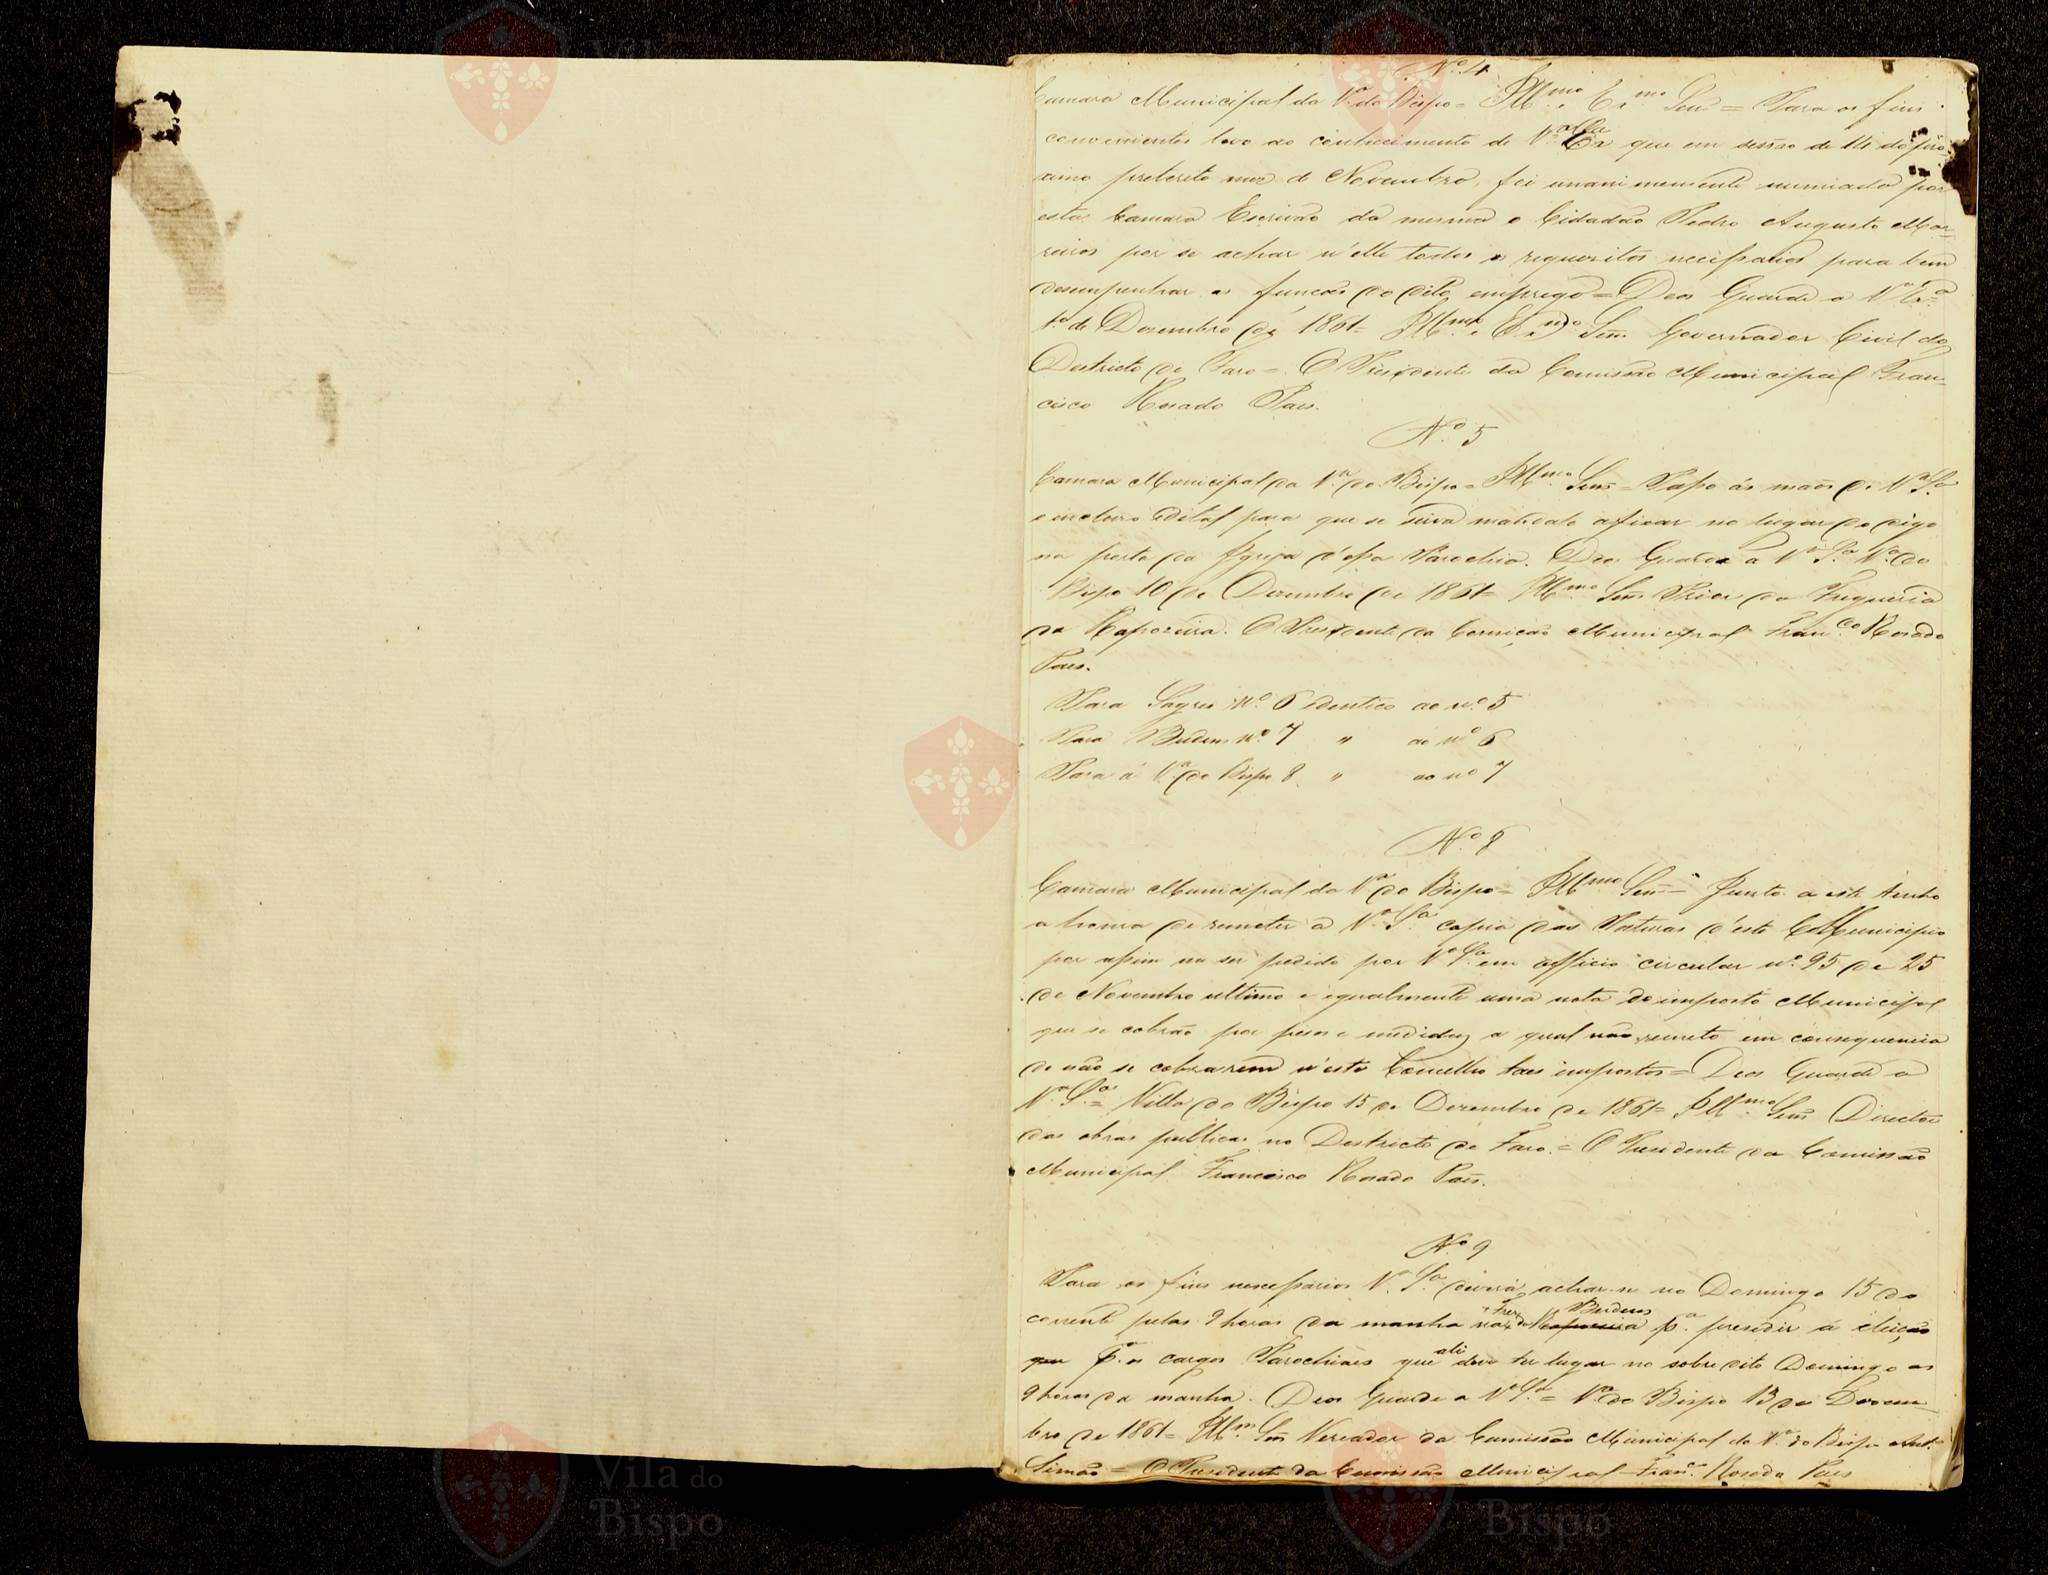 Nº 4
Camara Municipal da Vª do Bispo = Illmo e Exmo Senr = Para os fins
convenientes levo ao conhecimento de Vª Exª que em sessão de 14 do pro-
ximo preterito mez de Novembro, foi unanimemente numiado por
esta Camara Escrivão da mesma o Cidadão Pedro Augusto Mar-
reiros por se achar n'elle todos os requesitos necessarios para bem
desempenhar as funcões do dito emprego = Deos Guarde a Vª Exª
1º de Dezembro de 1861 = Illmo e Exmo Senr Governador Civil do
Destricto de Faro = O Presidente da Comissão Municipal Fran-
cisco Rosado Paes.
Nº 5
Camara Municipal da Vª do Bispo = Illmo Senr = Passo ás mãos de Vª Sª
o incluso Edital para que se sirva mandalo afixar no lugar do digo
na porta da Igreja d'essa Parochia. Deos Guarde a Vª Sª Vª do
Bispo 10 de Dezembro de 1861 = Illmo Senr Prior da Freguezia
da Rapozeira. O Presidente da Comição Municipal Franco Rosado
Paes.
Para Sagres Nº 6 identico ao nº 5
Para Budens Nº 7 " ao nº 6
Para á Vª do Bispo 8 " ao nº 7
Nº 8
Camara Municipal da Vª do Bispo = Illmo Senr = Junto a este tenho
a honra de remeter a Vª Sª copia das Posturas d'este Municipio
por assim me ser pedido por Vª Sª em officio circular nº 95 de 25
de Novembro ultimo e egualmente uma nota do imposto Municipal
que se cobrão por pesos e medidas, a qual não remeto em consequencia
de não se cobrarem n'este Concelho taes impostos = Deos Guarde a
Vª Sª = Villa do Bispo 15 de Dezembro de 1861 = Illmo Senr Director
das obras publicas no Destricto de Faro = O Presidente da Comissão
Municipal Francisco Rosado Paes.
Nº 9
Para os fins nescessarios Vª Sª deverá achar-se no Domingo 15 do
corrente pelas 9 horas da manha na Freg. de Budens pª presedir á eleição
pª os cargos Parochiaes que ali deve ter lugar no sobredito Domingo as
9 horas da manha. Deos Guarde a Vª Sª = Vª do Bispo 13 de Dezem-
bro de 1861 = Illmo Senr Vereador da Comissão Municipal da Vª do Bispo Antº
Simão = O Presidente da Comissão Municipal Franco Rosado Paes
Vila do
Bispo
Bispo